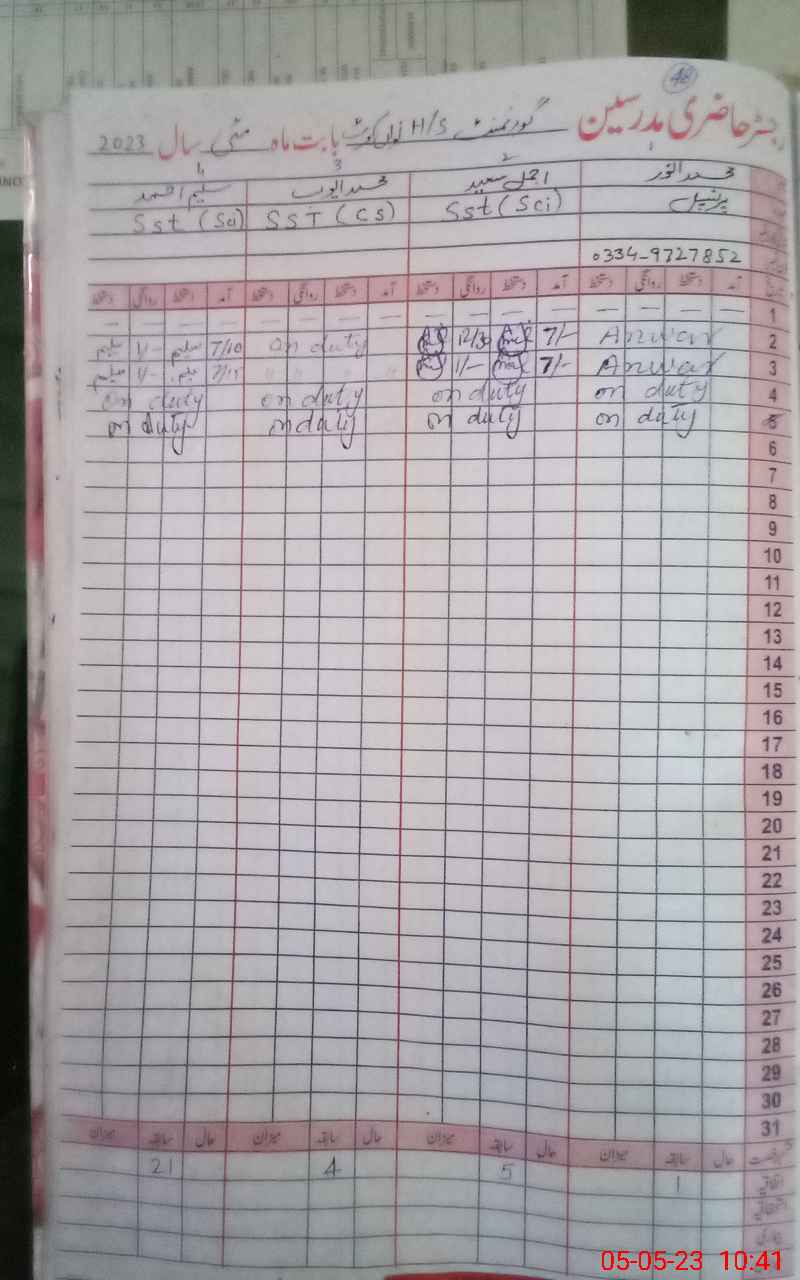 48
رجسٹر حاضری مدرسین گورنمنٹ H/S نواں کوٹ بابت ماہ مئی سال 2023
1 2 3 4
محمد انور اجمل سعید محمد ایوب سلیم احمد
پرنسپل Sst (Sci) SST (CS) Sst (Sci)
0334-9727852
آمد دستخط روانگی دستخط آمد دستخط روانگی دستخط آمد دستخط روانگی دستخط آمد دستخط روانگی دستخط
1 — — — — — — — — — — — — — — — —
2 Anwar 7/- 12/30 on duty 7/10 سلیم 1/- سلیم
3 Anwar 7/- 1/- " " " 7/15 سلیم 1/- سلیم
4 on duty on duty on duty on duty
5 on duty on duty on duty on duty
6
7
8
9
10
11
12
13
14
15
16
17
18
19
20
21
22
23
24
25
26
27
28
29
30
31
حال سابقہ میزان حال سابقہ میزان حال سابقہ میزان حال سابقہ میزان
اتفاقیہ 1 5 4 21
05-05-23 10:41